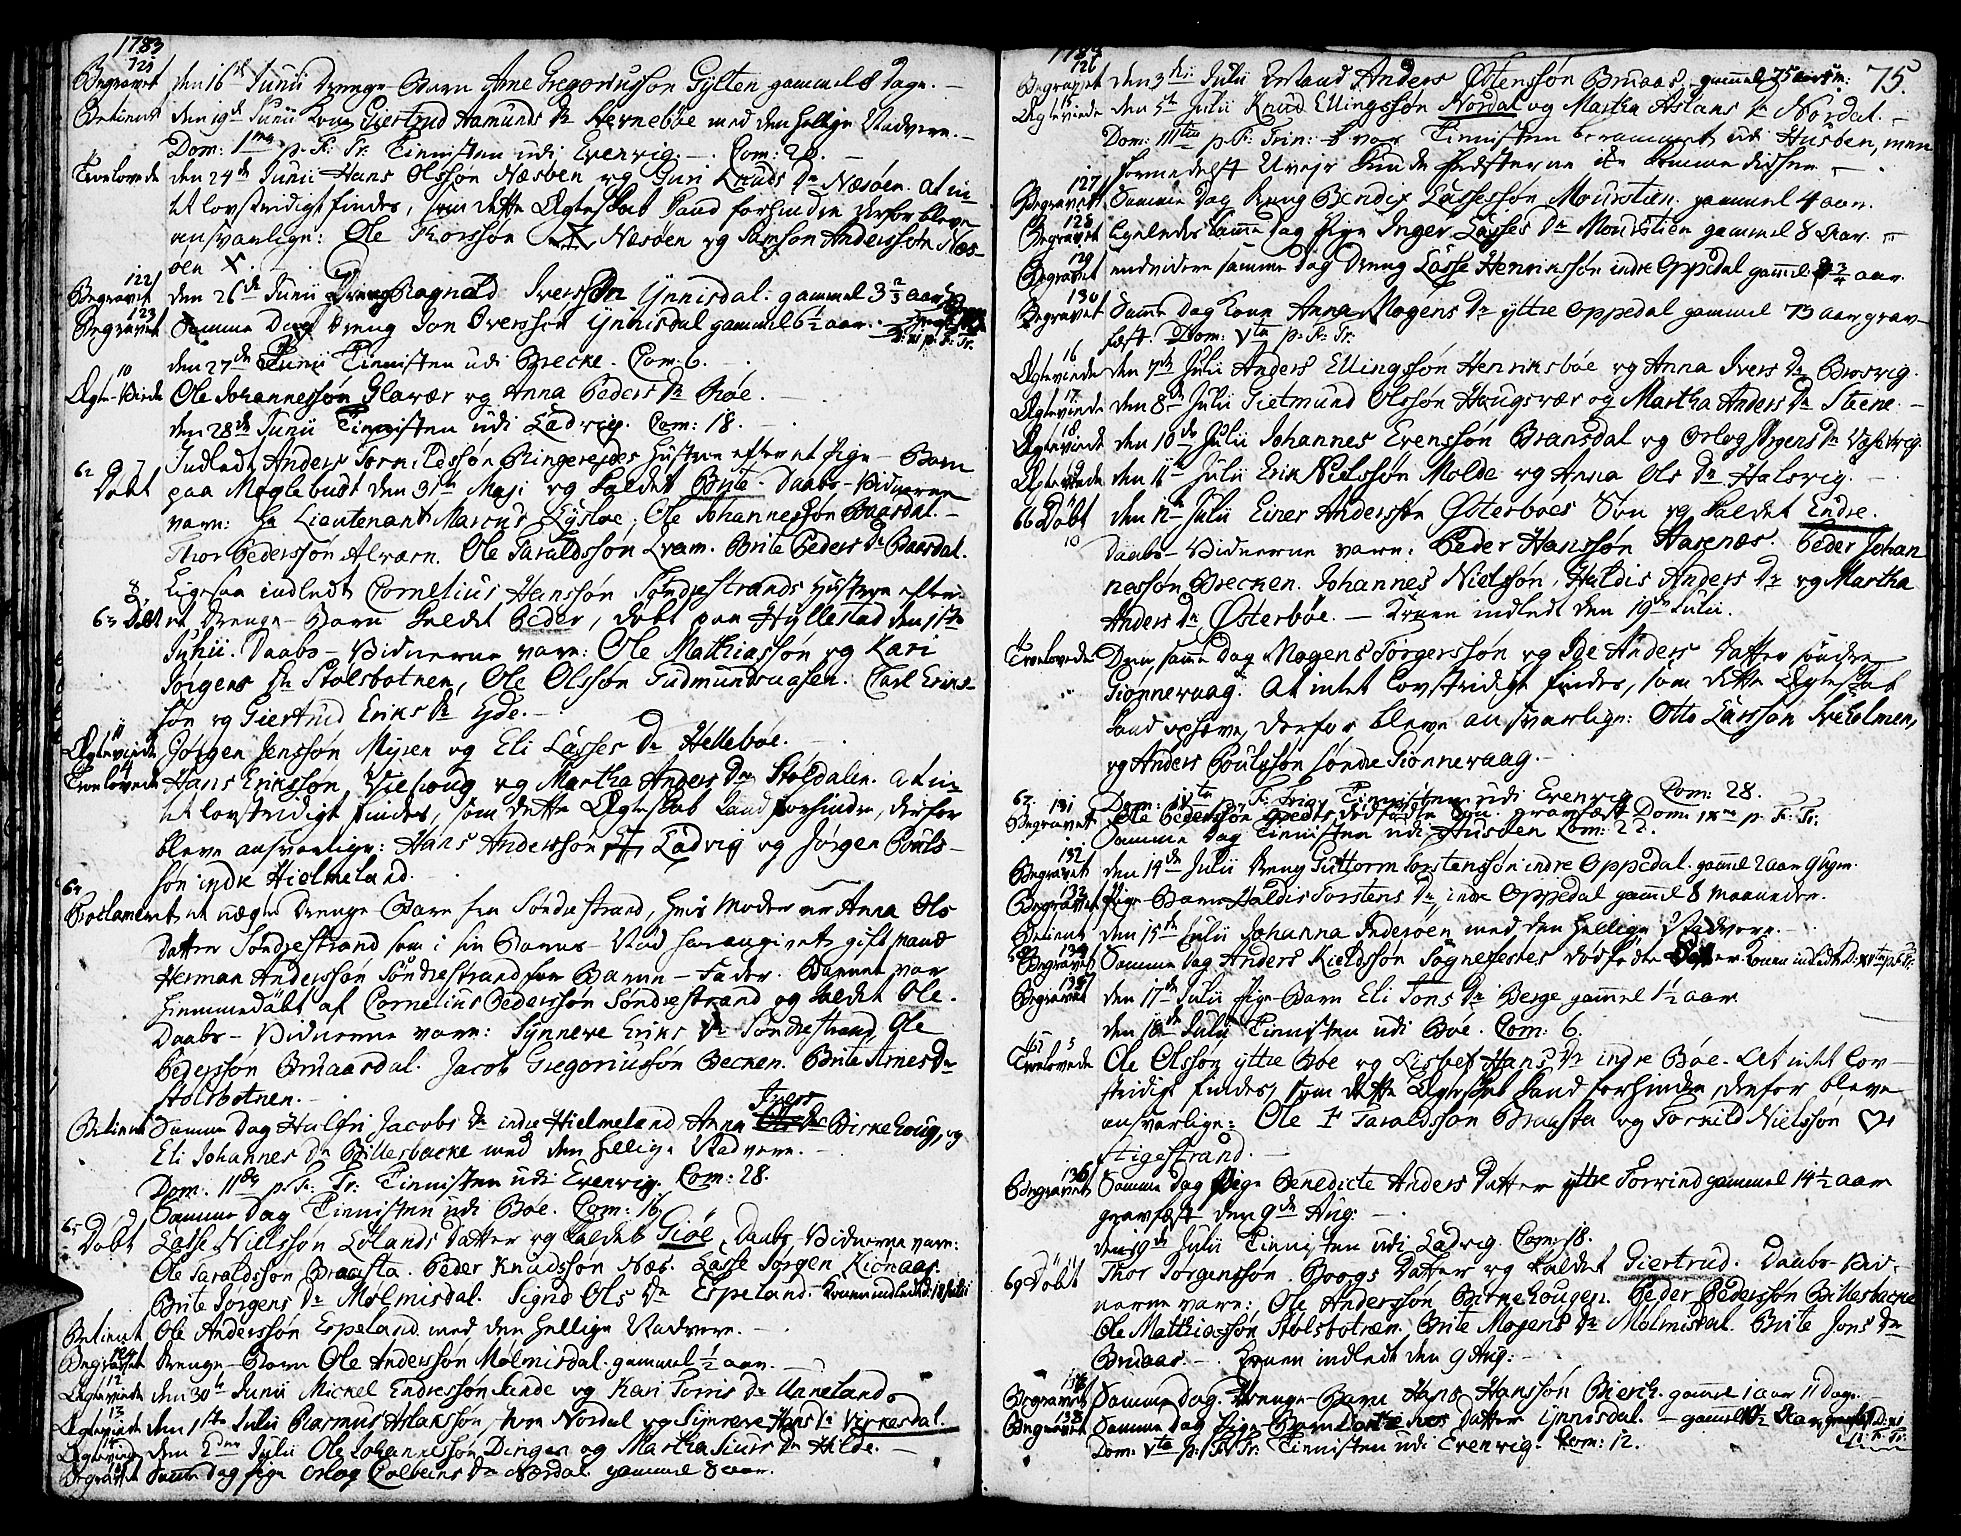 1783
121
Begravet den 16de Junii Drenge-Barn Arne Gregoriussøn Gylten gammel 8 Dage.
Betient den 19de Junii Kone Giertrud Aamunds Dr Hernebøe med den hellige Nadvere.
Dom: 1ma p. F: Tr: Tienisten udi Evenvig. Com: 20.
Troelovede den 24de Junii Hans Olssøn Næsøen og Guri Knuds Dr Næsøen. At in-
tet lovstridigt findes, som dette Ægteskab kand forhindre derfor bleve
ansvarlige: Ole Thorssøn Næsøen og Samson Anderssøn Næs-
øen X.
122
Begravet den 26de Junii Dreng Ragnald Iverssøn Ynnisdal. gammel 3 2/3 aar
123
Begravet Samme Dag Dreng Jon Iverssøn Ynnisdal gammel 6 1/2 aar.
den 27de Junii Tienisten udi Brecke. Com: 6.
10
Ægte-Viede Ole Johannessøn Glavær og Anna Peders Dr Røe.
den 28de Junii Tienisten udi Ladvig. Com: 18.
Indledt Anders Tornildssøn Ringereides Hustrue efter et Pige-Barn
62 Døbt paa Moglebust den 31te Maji og kaldet Brite. Daabs-Vidnerne
vare: Hr Lieutenant Marcus Lysloe, Ole Johannessøn Baasdal.
Thor Pederssøn Alværn. Ole Taraldssøn Qvam. Brite Peders Dr Baasdal.
8
Ligesaa indledt Cornelius Hanssøn Søndrestrands Hustrue efter
63 Døbt et Drenge-Barn kaldet Peder, døbt paa Hyllestad den 1ste
Junii. Daabs-Vidnerne vare: Ole Mathiassøn og Kari
Jørgens Dr Stølsbotnen, Ole Olssøn Gudmundsaasen. Carl Eriks-
søn og Giertrud Eriks Dr Eyde.
11
Ægteviede Jørgen Jenssøn Myren og Eli Lasses Dr Hellebøe.
Troelovede Hans Erikssøn Viehoug og Martha Anders Dr Støldalen. At in-
tet lovstridigt findes, som dette Ægteskab kand forhindre, derfor
bleve ansvarlige: Hans Anderssøn Ladvig og Jørgen Pouls-
søn indre Hielmeland.
64
Proclameret et uægte Drenge-Barn fra Søndrestrand, hvis Moder er Anna Ols
Datter Søndrestrand som i sin Barns-Nød har angivet gift Mand
Herman Anderssøn Søndrestrand for Barne-Fader. Barnet var
hiemmedøbt af Cornelius Pederssøn Søndrestrand og kaldet Ole.
Daabs-Vidnerne vare: Synneve Eriks Dr Søndrestrand, Ole
Pederssøn Bruaasdal. Jacob Gregoriussøn Becken. Brite Arnes Dr
Stølsbotnen.
Betient Samme Dag Halfri Jacobs Dr indre Hielmeland, Anna Ivers Dr Birkehoug, og
Eli Johannes Dr Bittersbacke med den hellige Nadvere.
Dom. IIda p. F: Tr: Tienisten udi Evenvig. Com: 28.
Samme Dag Tienisten udi Bøe. Com: 16.
65 Døbt Lasse Nielssøn Lølands Datter og kaldet Giøe. Daabs-Vidnerne vare:
Ole Taraldssøn Braasta. Peder Knudssøn Næs. Lasse Jørgen Kiønaas.
Brite Jørgens Dr Mølmisdal. Signe Ols Dr Espeland. Konen indledt d: 18 Julii
Betient Ole Anderssøn Espeland med den hellige Nadvere.
124
Begravet Drenge-Barn Ole Anderssøn Mølmisdal. gammel 1/2 aar.
12
Ægteviede den 30te Junii Mickel Endressøn Sande og Kari Torris Dr Anneland.
13
Ægteviede den 1ste Julii Rasmus Aslakssøn Nordal og Synneve Hans Dr Virkesdal.
14
Ægteviede den 2den Julii Ole Johannessøn Dingen og Martha Siurs Dr Hilde.
125
Begravet Samme Dag Pige Orlog Colbeins Dr Nordal gammel 8 aar.
1783
75.
126
Begravet den 3die Julii Enkemand Anders Østenssøn Bruaas. gammel 75 aar
15
Ægteviede den 5te Julii Knud Ellingssøn Nordal og Martha Aslaks Dr Nordal.
Dom: IIItia p. F: Trin: blev Tienisten berammet udi Husøen, men
formedelst Uvejr kunde Præsterne ikke komme didhen.
127
Begravet Samme Dag Dreng Bendix Lassessøn Moursteen. gammel 4 aar.
128
Begravet Ligeledes samme dag Pige Inger Lasses Dr Moursteen gammel 8 Aar.
129
Begravet endvidere samme dag Dreng Lasse Henrikssøn indre Oppedal gammel 3/4 aar.
130
Begravet Samme Dag Kone Anna Mogens Dr yttre Oppedal gammel 73 aar grav-
fæst. Dom: Vta p. F: Tr:
16
Ægteviede den 7de Julii Anders Ellingssøn Henriksbøe og Anna Ivers Dr Brosvig.
17
Ægteviede den 8de Julii Gietmund Olssøn Haugsvær og Martha Anders Dr Steene.
18
Ægteviede den 10de Julii Johannes Evenssøn Bransdal og Orlog Jørgens Dr
Ægteviede den 11te Julii Erik Nielssøn Molde og Anna Ols Dr Halsvig.
66 Døbt den 12te Julii Einer Anderssøn Østerbøes Søn og kaldet Endre.
10
Daabs-Vidnerne vare: Peder Hanssøn Harenæs. Peder Johan
nessøn Brecken. Johannes Nielssøn, Haldis Anders Dr og Martha
Anders Dr Østerbøe. — Konen indledt den 19de Julii.
Troelovede Den samme Dag Mogens Torgerssøn og Ide Anders Datter søndre
Giønnevaag. At intet lovstridigt findes, som dette Ægteskab
kand ophæve, derfor bleve ansvarlige: Otto Larssøn Sveholmen,
og Anders Poulssøn søndre Giønnevaag.
Dom: IVta p. F: Trin: Tienisten udi Evenvig. Com: 28.
67 131
Begravet Ole Pederssøn dødfødte Søn. gravfæst Dom: IXna p. F: Tr:
Samme Dag Tienisten udi Husøen Com: 22.
132
Begravet den 14de Julii Dreng Guttorm Torstenssøn indre Oppedal. gammel 2 aar 9 Uger.
133
Begravet Pige-Barn Haldis Torstens Dr, indre Oppedal gammel 8 Maaneder.
Betient den 15de Julii Johanna Inderøen med den hellige Nadvere.
134
Begravet Samme Dag Anders Kieldssøn Sognefestes dødfødte Datter. Konen indledt D: XVta p. F: Tr:
135
Begravet den 17de Julii Pige-Barn Eli Jons Dr Berge gammel 1 1/2 aar.
den 18de Julii Tienisten udi Bøe. Com: 6.
Troelovede Ole Olssøn yttre Bøe og Lisbet Hans Dr indre Bøe. At intet lov-
stridigt findes, som dette Ægteskab kand forhindre, derfor bleve
ansvarlige: Ole Taraldssøn Braasta og Tornild Nielssøn
Stigestrand.
136
Begravet Samme Dag Pige Benedicte Anders Datter yttre Torvind gammel 14 1/2 aar
gravfæst den 9de Aug:
den 19de Julii Tienisten udi Ladvig. Com: 18.
69 Døbt Thor Jørgenssøn Boogs Datter og kaldet Giertrud. Daabs-Vid-
nerne vare: Ole Anderssøn Birkehougen. Peder Pederssøn Bittersbacke
Ole Matthiassøn Stølsbotnen. Brite Mogens Dr Mølmisdal. Brite Jons Dr
Bruaas. — Konen indledt den 9 Aug:
Begravet Samme Dag. Drenge-Barn Hans Hanssøn Bierch. gammel 1 aar 11 Dage.
138
Begravet Samme Dag Pige-Barn Datter Ynnisdal. gammel
Dom: Vta p. F: Tr: Tienisten udi Evenvig. Com: 12.